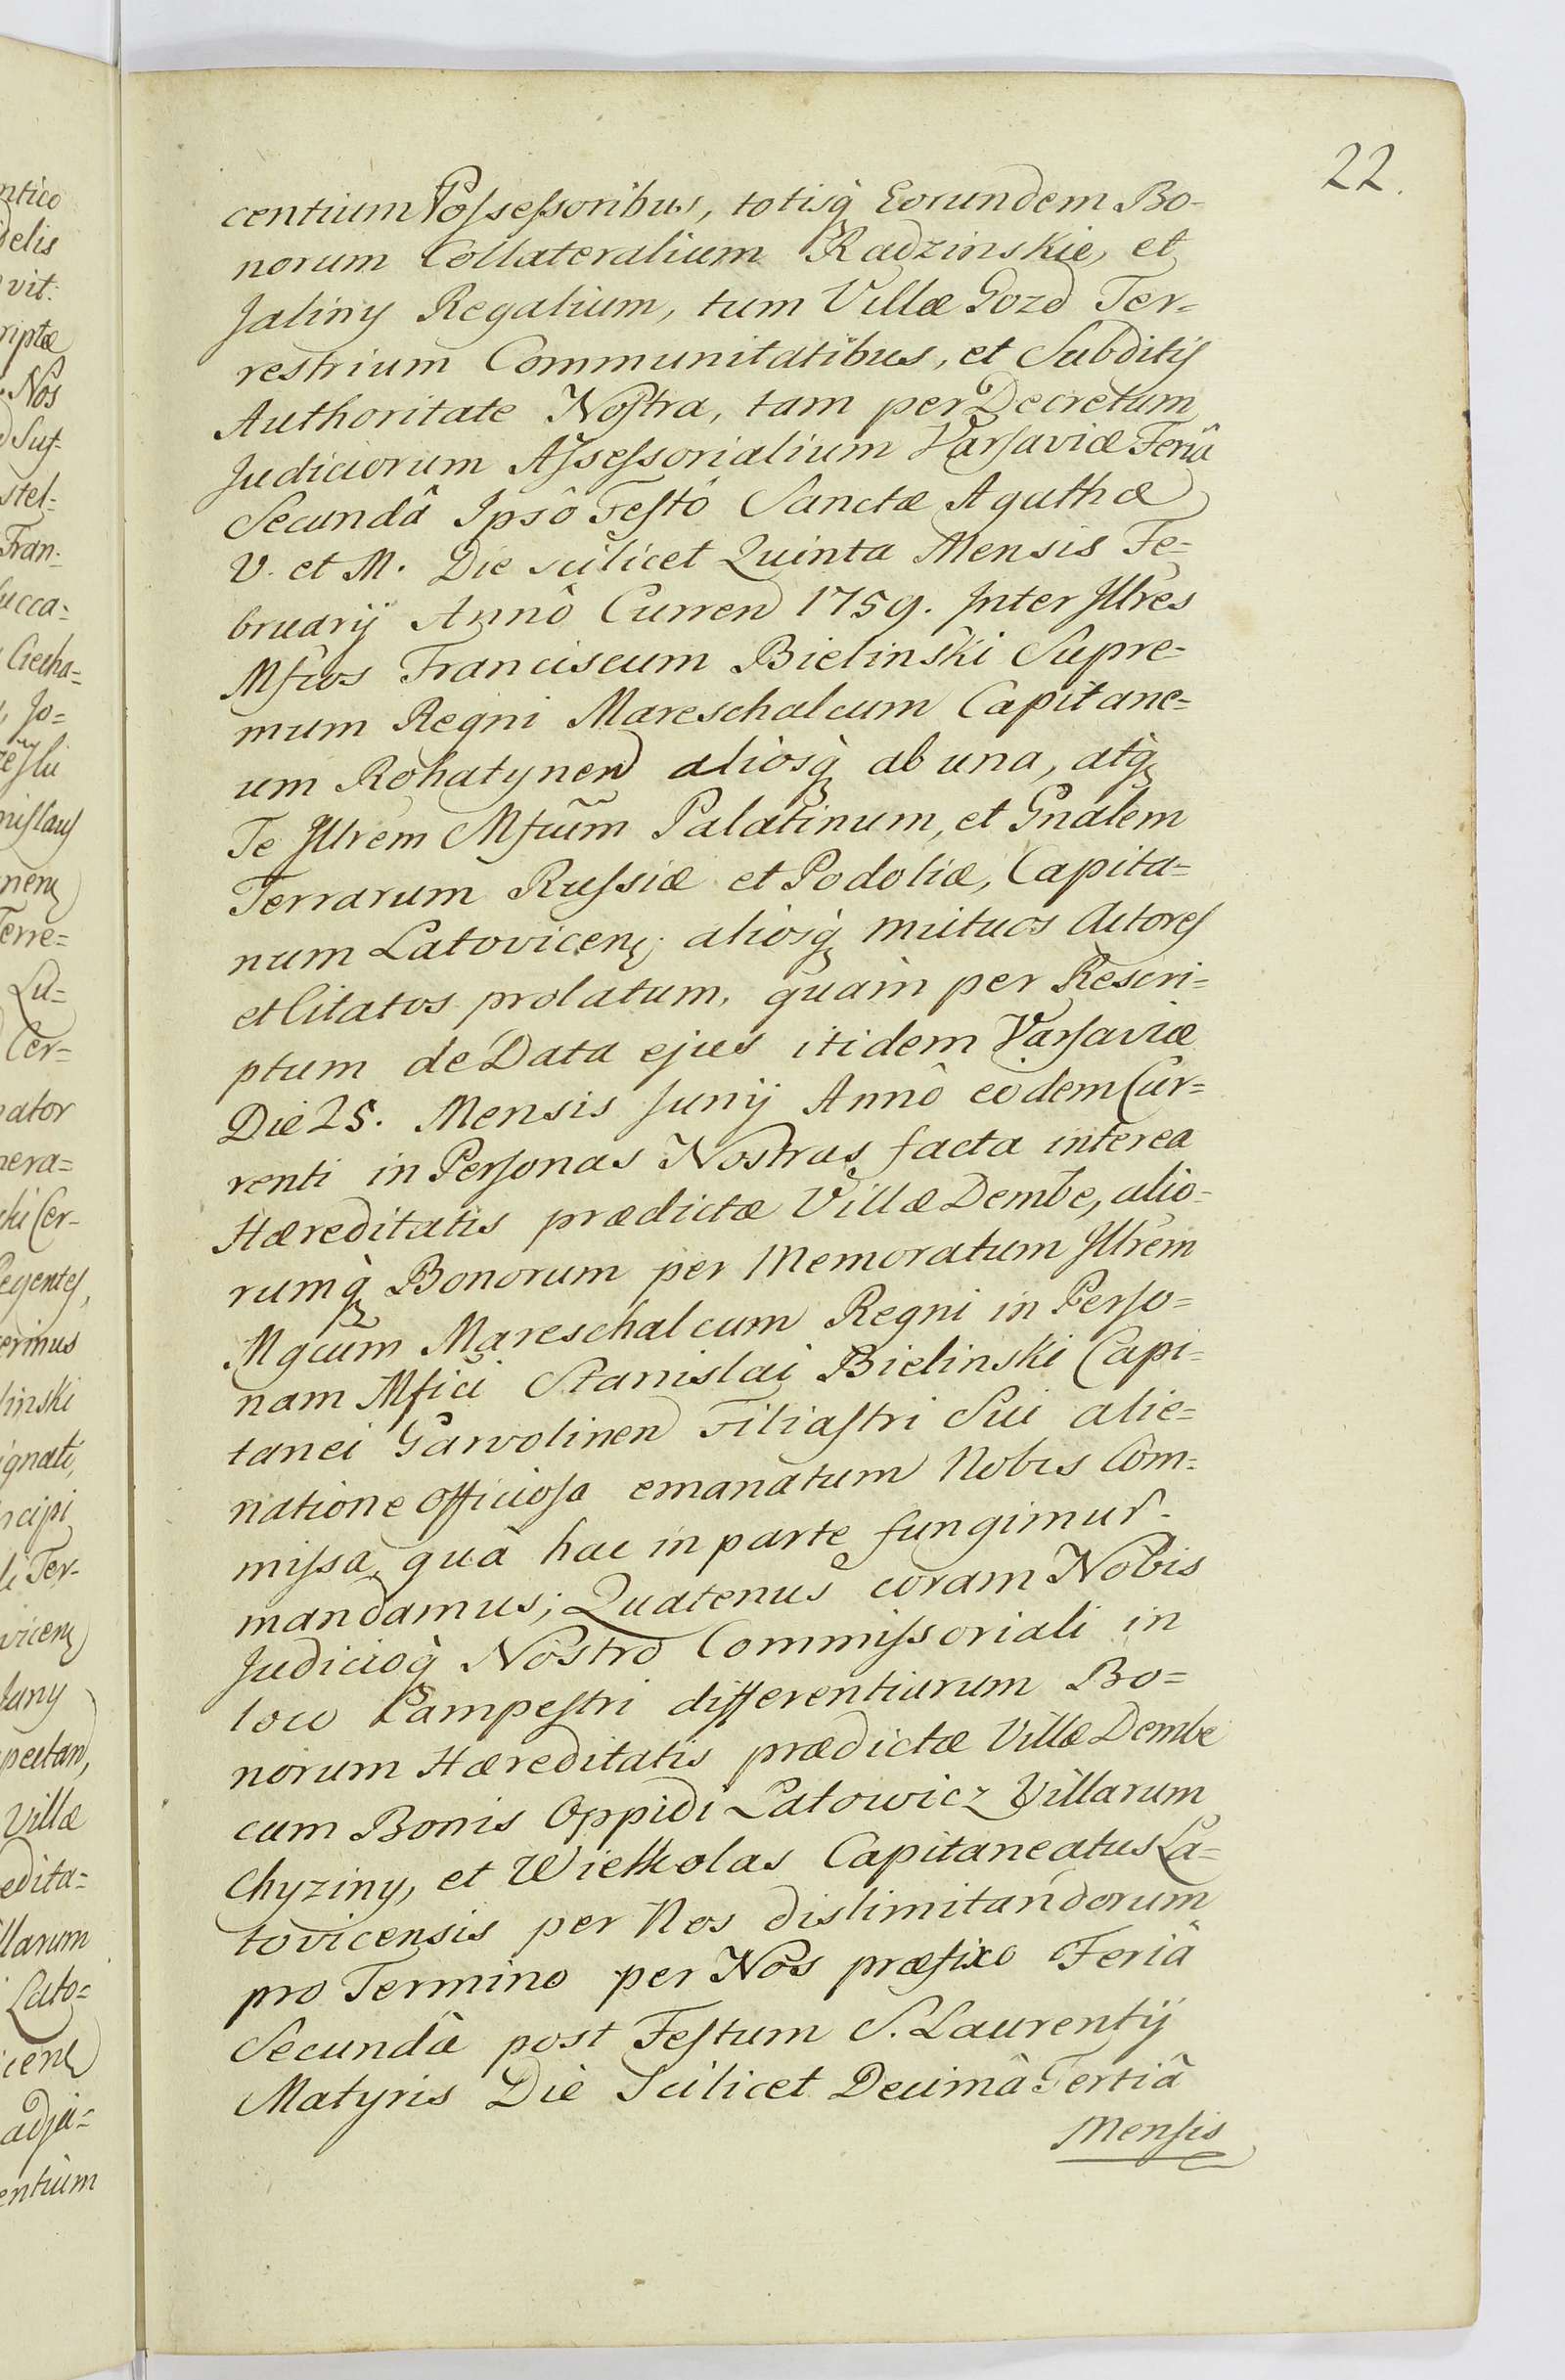 22.
centium Possessoribus, totisq Eorundem Bo-
norum Collateralium Radzinskie, et
Jaliny Regalium, tum Villæ Gozd Ter-
restrium Communitatibus, et Subditis
Authoritate Nostra, tam per Decretum
Judiciorum Assessorialium Varsaviæ Feriâ
Secundâ Ipsô Festô Sanctæ Agathæ
V. et M. Die scilicet Quinta Mensis Fe=
bruarij Annô Curren 1759. Inter Illres
Mfcos Franciscum Bielinski Supre-
mum Regni Mareschalcum Capitane=
um Rohatynen aliosq ab una, atq
Te Illrem Mfcum Palatinum, et Gnalem
Terrarum Russiæ et Podoliæ, Capita=
num Latovicen. aliosq mutuos Actores
et Citatos prolatum, quam per Rescri=
ptum de Data ejus itidem Varsaviæ
Die 25. Mensis Junij Annô eodem Cur=
renti in Personas Nostras facta interea
Hæreditatis prædictæ Villæ Dembe, alio=
rumq Bonorum per Memoratum Illrem
Mgcum Mareschalcum Regni in Perso=
nam Mfici Stanislai Bielinski Capi=
tanei Garvolinen Filiastri Sui alie=
natione officiosa emanatum Nobis Com=
missa, quâ hac in parte fungimur.
mandamus; Quatenus coram Nobis
Judicioq Nostro Commissoriali in
loco Campestri differentiarum Bo=
norum Hæreditatis prædictæ Villæ Dembe
cum Bonis Oppidi Latowicz Villarum
Chyziny, et Wielkolas Capitaneatus La=
tovicensis per Nos dislimitandorum
pro Termino per Nos præfixo Feriâ
Secundâ post Festum S. Laurentij
Matyris Die Scilicet Decimâ Tertiâ
Mensis